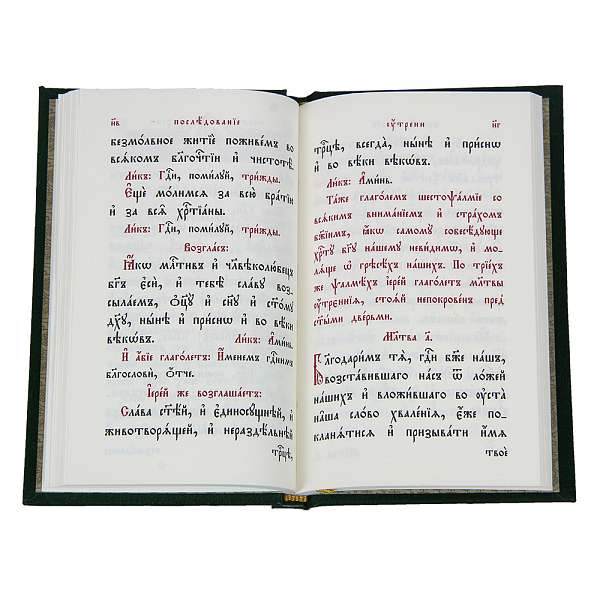 н҃в
послѣ́дованїе
безмо́лвное житїѐ поживе́мъ во
всѧ́комъ бл҃гоче́стїи и҆ чистотѣ̀.
Ли́къ: Гдⷭ҇и, поми́лꙋй, три́жды.
Е҆щѐ мо́лимсѧ за всю̀ бра́тїю
и҆ за всѧ̑ хрⷭ҇тїа́ны.
Ли́къ: Гдⷭ҇и, поми́лꙋй, три́жды.
Возгла́съ:
Ꙗ҆́кѡ млⷭ҇тивъ и҆ чл҃вѣколю́бецъ
бг҃ъ є҆сѝ, и҆ тебѣ̀ сла́вꙋ воз-
сыла́емъ, ѻ҆ц҃ꙋ̀ и҆ сн҃ꙋ и҆ ст҃о́мꙋ
дх҃ꙋ, ны́нѣ и҆ при́снѡ и҆ во вѣ́ки
вѣкѡ́въ. Ли́къ: А҆ми́нь.
И҆ а҆́бїе глаго́летъ: И҆́менемъ гдⷭ҇нимъ
благословѝ, ѻ҆́тче.
І҆ере́й же возглаша́етъ:
Сла́ва ст҃ѣ́й, и҆ є҆диносꙋ́щнѣй, и҆
животворѧ́щей, и҆ нераздѣ́льнѣй
трⷪ҇цѣ,
ᲂу҆́трени
н҃г
трⷪ҇цѣ, всегда̀, ны́нѣ и҆ при́снѡ
и҆ во вѣ́ки вѣкѡ́въ.
Ли́къ: А҆ми́нь.
Та́же глаго́лемъ шестоѱа́лмїе со
всѧ́кимъ внима́нїемъ и҆ стра́хомъ
бж҃їимъ, ꙗ҆́кѡ самомꙋ̀ собесѣ́дꙋюще
хрⷭ҇тꙋ̀ бг҃ꙋ на́шемꙋ неви́димѡ, и҆ мо-
лѧ́ще ѡ҆ грѣсѣ́хъ на́шихъ. По трїе́хъ
же ѱалмѣ́хъ і҆ере́й глаго́летъ мл҃твы
ᲂу҆́трєннїѧ, стоѧ́й непокрове́нъ пред̾
ст҃ы́ми две́рьми.
Мл҃тва а҃.
Благодари́мъ тѧ̀, гдⷭ҇и бж҃е на́шъ,
возста́вившаго на́съ ѿ ло́жей
на́шихъ и҆ вложи́вшаго во ᲂу҆ста̀
на̑ша сло́во хвале́нїѧ, є҆́же по-
кланѧ́тисѧ и҆ призыва́ти и҆́мѧ
твоѐ